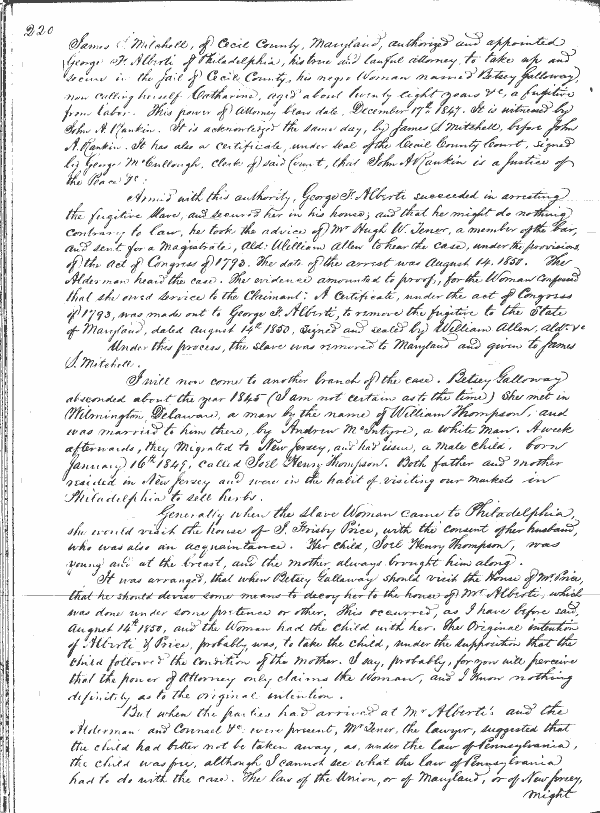 220
James S. Mitchell, of Cecil County, Maryland, authorized and appointed
George F. Alberti of Philadelphia, his true and lawful attorney, to take up and
secure in the jail of Cecil County, his negro Woman named Betsey Galloway,
now calling herself Catharine, aged about twenty eight years &c, a fugitive
from labor. This power of Attorney bears date, December 17th 1847. It is witnessed by
John A. Rankin. It is acknowledged the same day, by James S. Mitchell, before John
A. Rankin. It has also a certificate, under seal of the Cecil County Court, signed
by George McCullough, clerk of said Court, that John A Rankin is a Justice of
the Peace &c:
Armed with this authority, George F. Alberti succeeded in arresting
the fugitive slave, and secured her in his house; and that he might do nothing
contrary to law, he took the advice of Mr Hugh W. Tener, a member of the bar,
and sent for a Magistrate, Ald: William Allen to hear the case, under the provisions
of the act of Congress of 1793. The date of the arrest was August 14. 1850. The
Alderman heard the case. The evidence amounted to proof, for the Woman confessed
that she owed service to the Claimant: A Certificate, under the act of Congress
of 1793, was made out to George F. Alberti, to remove the fugitive to the State
of Maryland, dated August 14th 1850, signed and sealed by William Allen, ald: &c
Under this process, the slave was removed to Maryland and given to James
S. Mitchell.
I will now come to another branch of the case. Betsey Galloway
absconded about the year 1845 (I am not certain as to the time) She met in
Wilmington, Delaware, a man by the name of William Thompson, and
was married to him there, by Andrew McIntyre, a white Man. A week
afterwards, they Migrated to New Jersey, and had issue, a Male child, born
January 16th 1849, called Joel Henry Thompson. Both father and mother
resided in New Jersey and were in the habit of visiting our markets in
Philadelphia to sell herbs.
Generally when the slave Woman came to Philadelphia,
she would visit the house of J. Frisby Price, with the consent of her husband,
who was also an acquaintance. Her child, Joel Henry Thompson, was
young and at the breast, and the mother, always brought him along.
It was arranged, that when Betsey Galloway should visit the House of Mr Price,
that he should devise some means to decoy her to the house of Mr Alberti, which
was done under some pretence or other. This occurred, as I have before said,
August 14th 1850, and the Woman had the child with her. The Original intention
of Alberti & Price, probably was, to take the child, under the supposition that the
child followed the condition of the Mother. I say, probably, for you will perceive
that the power of Attorney only claims the Woman, and I know nothing
definitely as to the original intention.
But when the parties had arrived at Mr Alberti's and the
Alderman and Counsel &c. were present, Mr Tener, the lawyer, suggested that
the child had better not be taken away, as, under the law of Pennsylvania,
the child was free, although I cannot see what the law of Pennsylvania
had to do with the case. The law of the Union, or of Maryland, or of New Jersey,
might